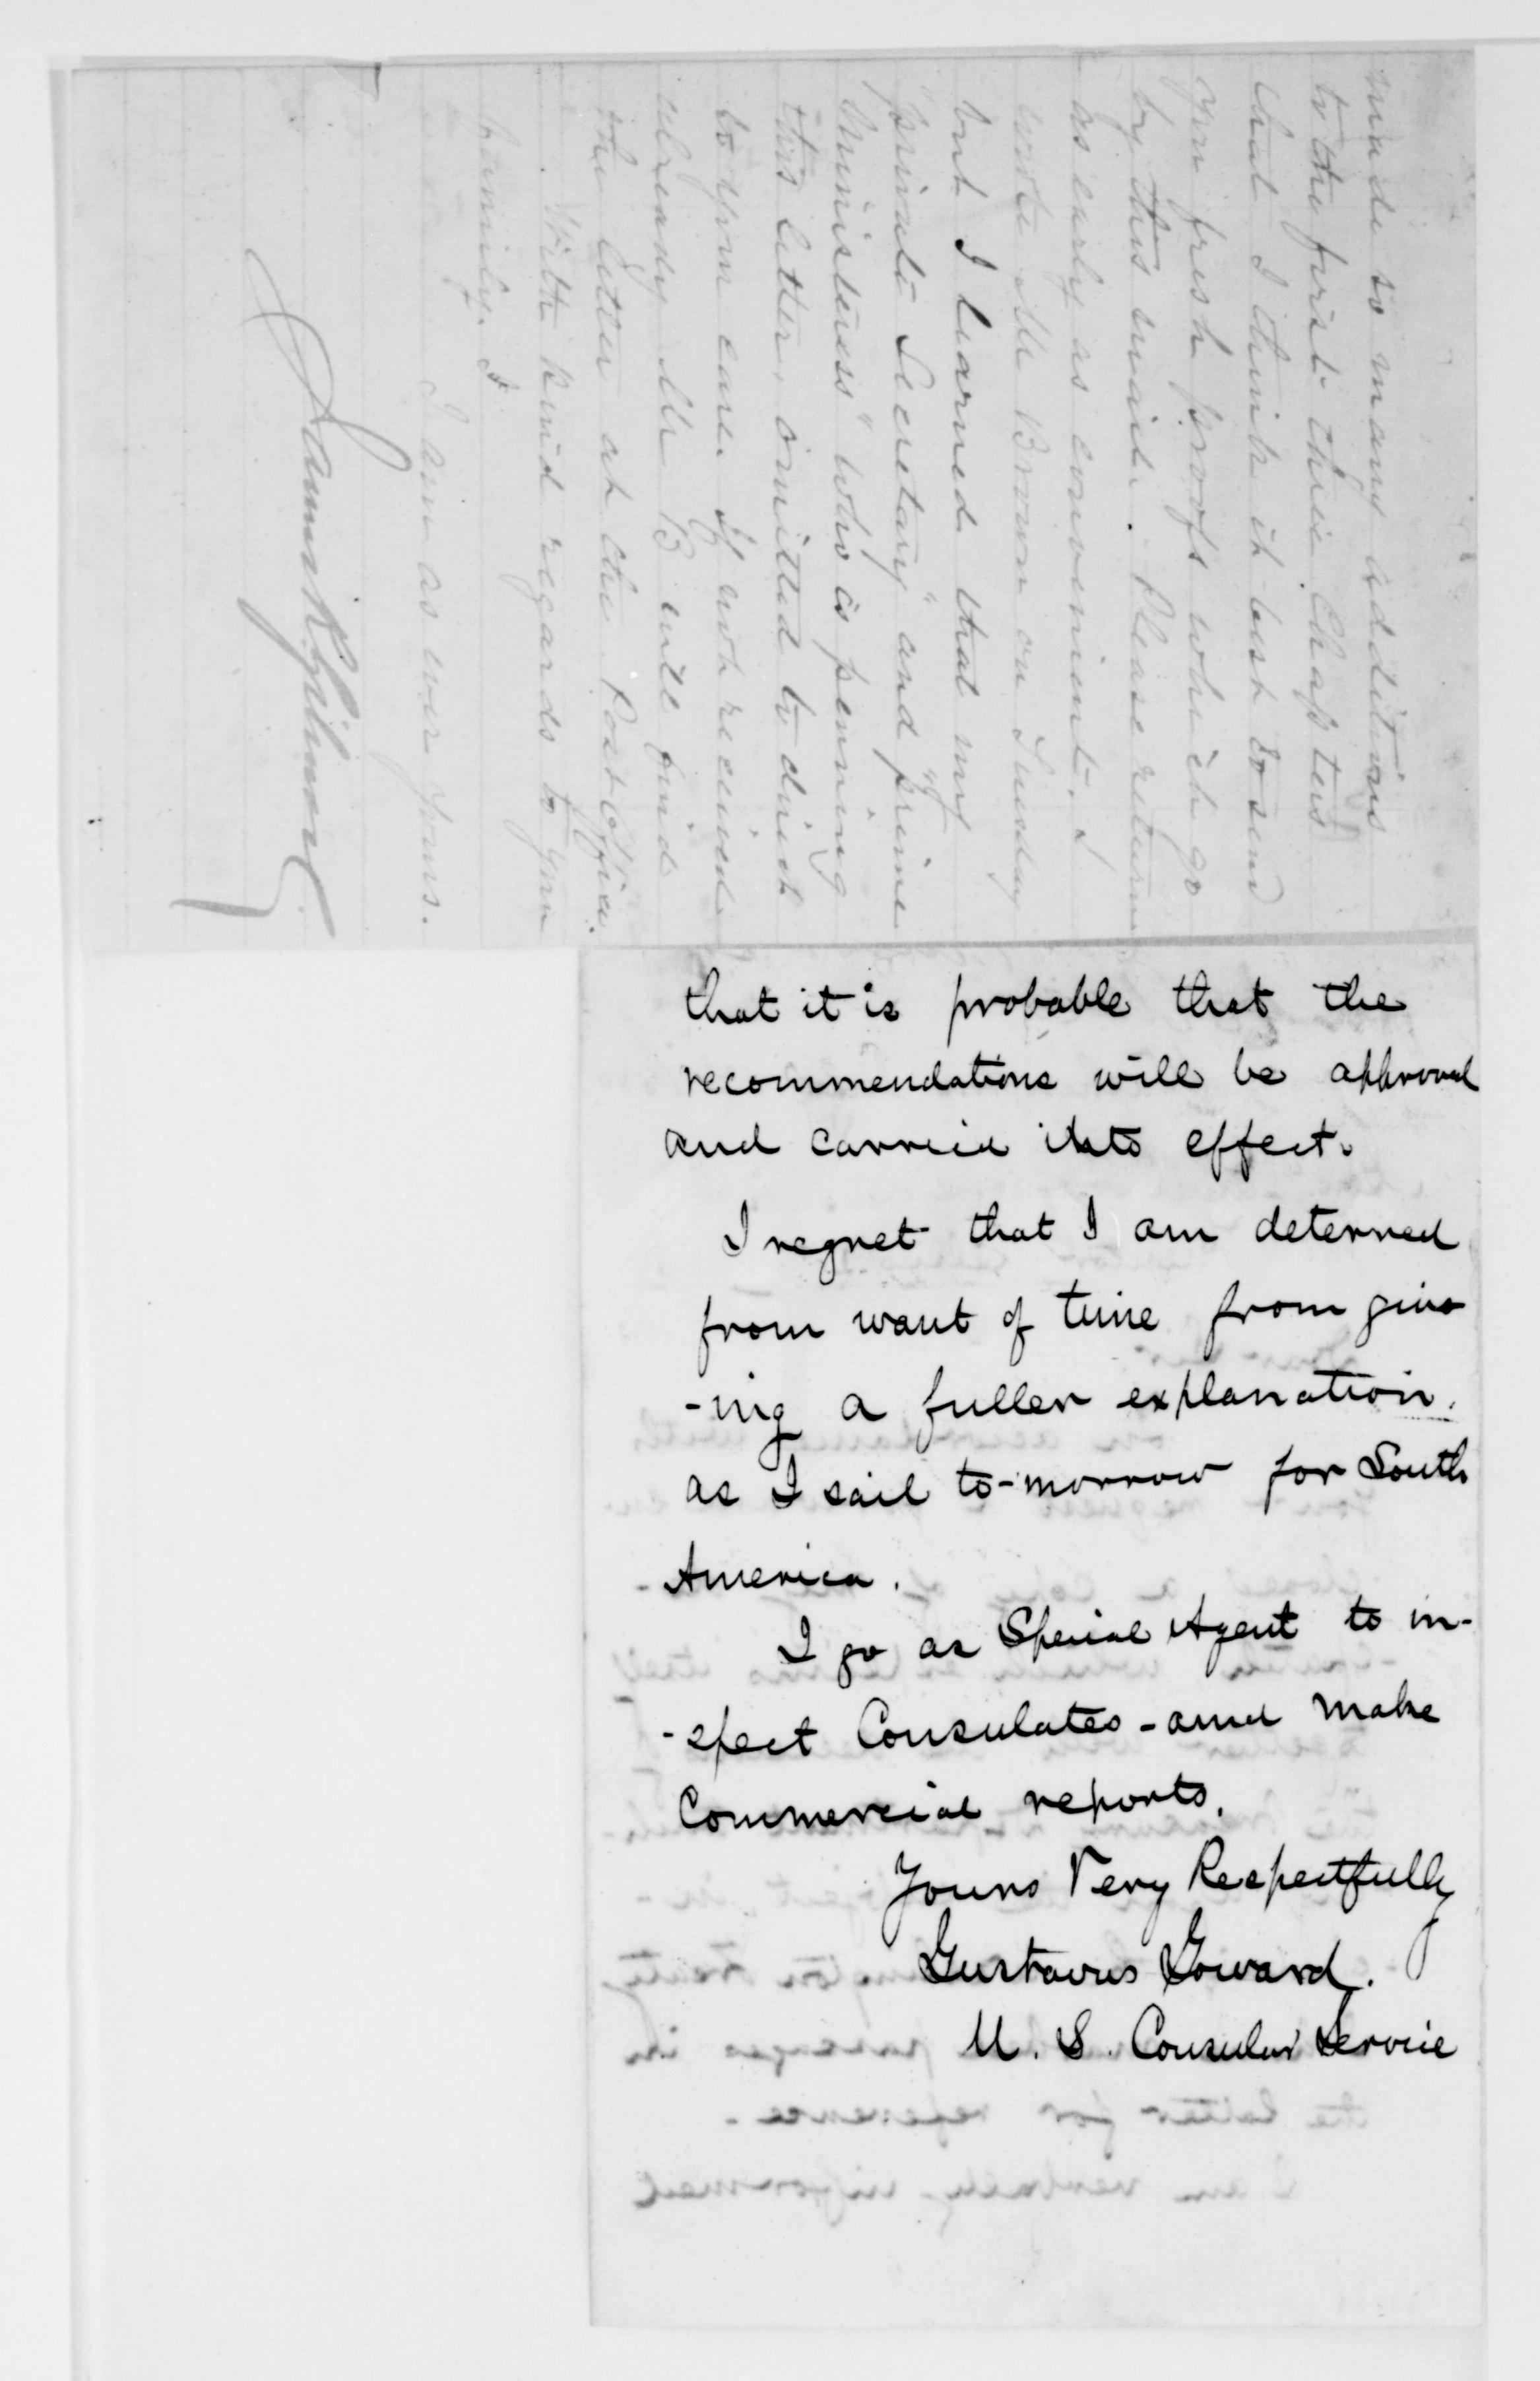 made so many additions
to the first three Chapters
that I think it best to send
you fresh proofs which go
by this mail. Please return
as early as convenient. I
wrote Mr Brown on Tuesday
but I learned that my
"private Secretary" and "prime
Ministress" who is penning
this letter, omitted to direct
to your care. If not received
already Mr B will find
the letter at the Post Office.
With kind regards to your
family. I
I am as ever yours.
James R. Gilmore
that it is probable that the
recommendations will be approved
and carried into effect.
I regret that I am deterred
from want of time from giv-
-ing a fuller explanation.
as I sail to-morrow for South
America.
I go as Special Agent to in-
-spect Consulates - and make
Commercial reports.
Yours Very Respectfully
Gustavus Goward.
U. S. Consular Service